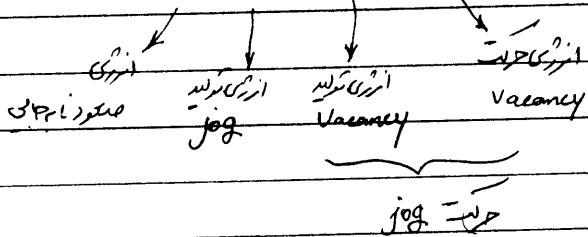 انرژی حرکت vacancy
انرژی تولید Vacancy
انرژی تولید jog
انرژی صعود نابه‌جایی
حرکت jog